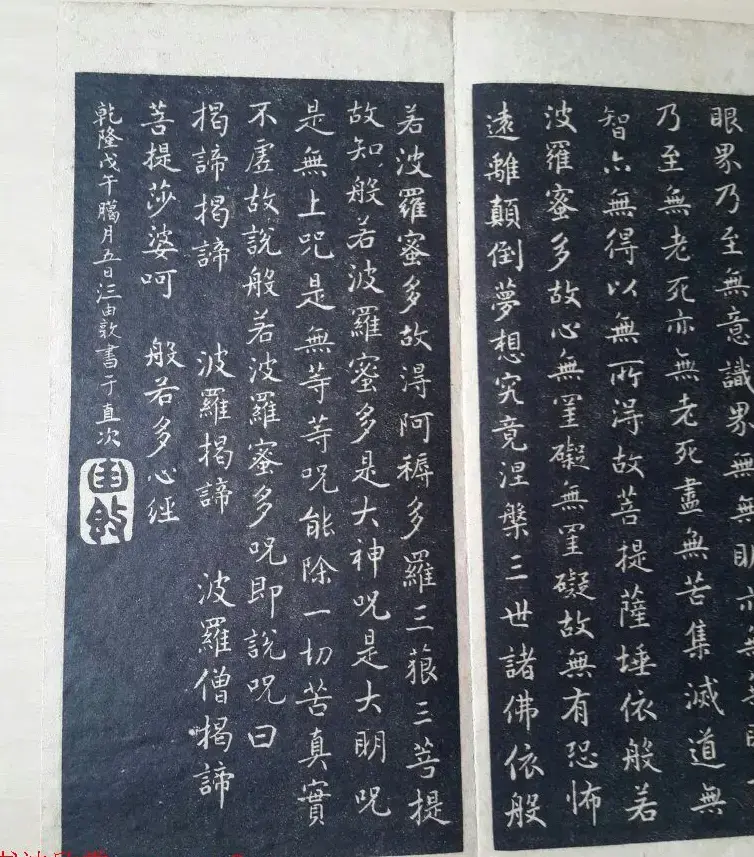 眼界乃至無意識界無無明亦無
乃至無老死亦無老死盡無苦集滅道無
智亦無得以無所得故菩提薩埵依般若
波羅蜜多故心無罣礙無罣礙故無有恐怖
遠離顛倒夢想究竟涅槃三世諸佛依般
若波羅蜜多故得阿耨多羅三藐三菩提
故知般若波羅蜜多是大神呪是大明呪
是無上呪是無等等呪能除一切苦真實
不虛故說般若波羅蜜多呪即說呪曰
揭諦揭諦 波羅揭諦 波羅僧揭諦
菩提莎婆呵 般若多心經
乾隆戊午臈月五日汪由敦書于直次
由敦